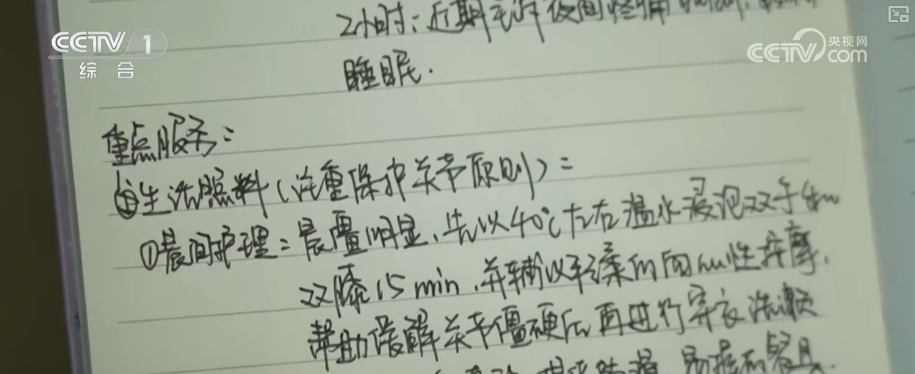 CCTV 1
综合
央视网
CCTV.com
2小时；近期主诉夜间疼痛
睡眠.
重点服务：
生活照料（注重保护关节原则）：
①晨间护理：晨僵明显、先以40℃左右温水浸泡双手
双膝15min，并辅以轻柔的向心性按摩，
帮助缓解关节僵硬后再进行穿衣洗漱
易握的餐具